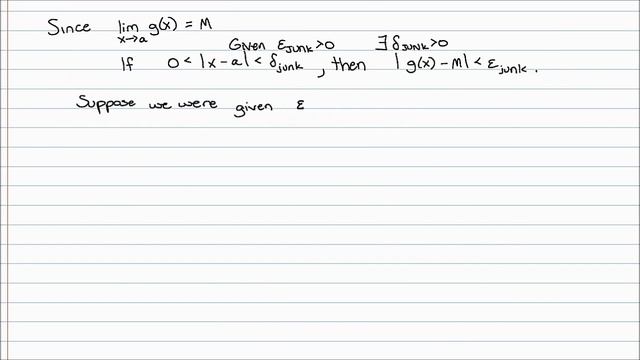 Since lim g(x) = M
x→a
Given ε_junk>0 ∃ δ_junk>0
If 0 < |x-a| < δ_junk, then |g(x)-M| < ε_junk.
Suppose we were given ε